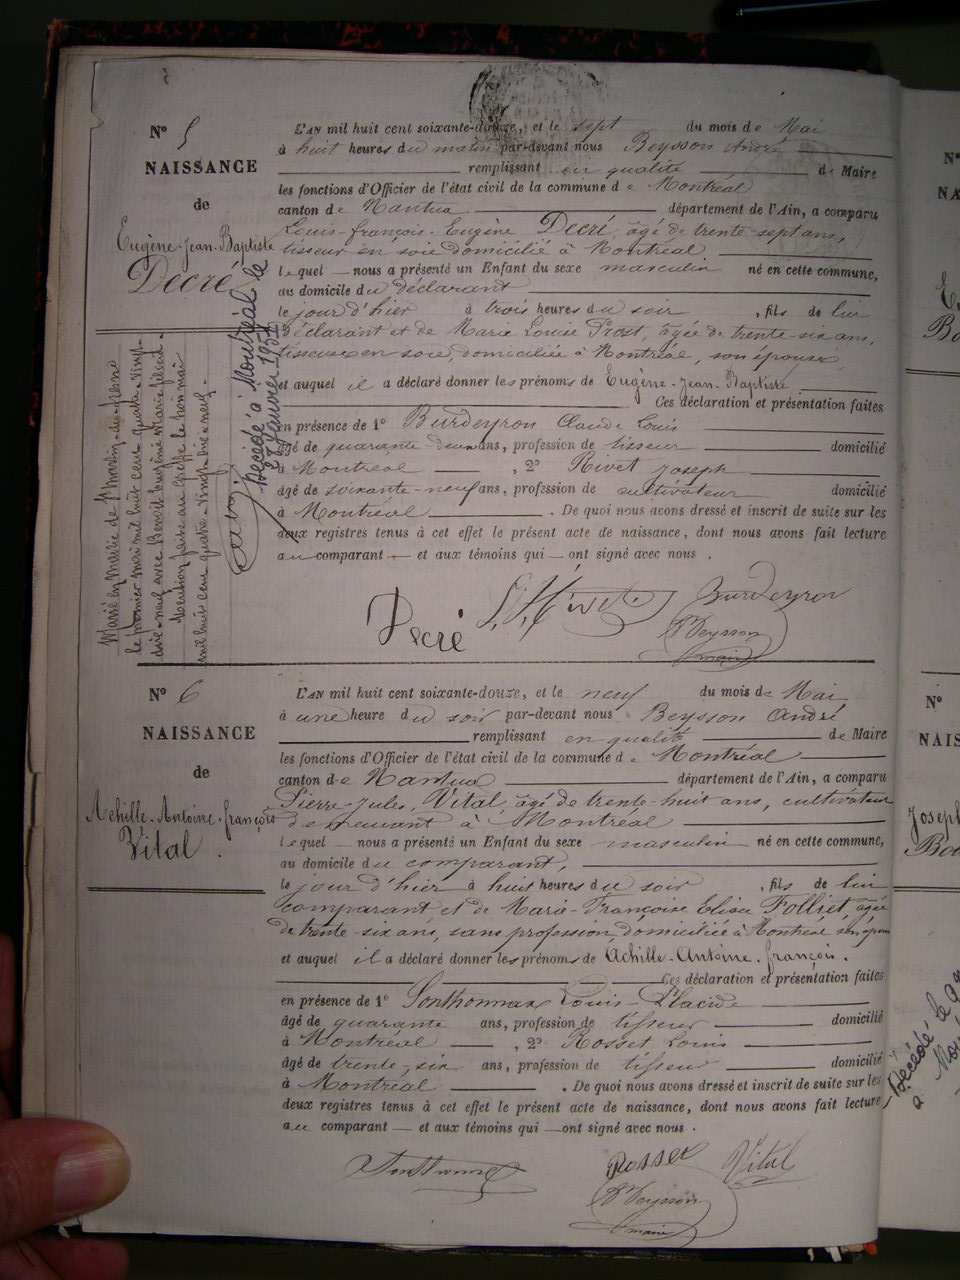 N° 5
NAISSANCE
de
Eugène-Jean-Baptiste
Decré
L'AN mil huit cent soixante-douze, et le sept du mois de Mai
à huit heures du matin par-devant nous Beysson André
remplissant en qualité de Maire
les fonctions d'Officier de l'état civil de la commune de Montréal
canton de Nantua département de l'Ain, a comparu
Louis-françois-Eugène Decré, âgé de trente-sept ans,
tisseur en soie domicilié à Montréal
lequel nous a présenté un Enfant du sexe masculin né en cette commune,
au domicile du déclarant
le jour d'hier à trois heures du soir, fils de lui
déclarant et de Marie Louise Prost, âgée de trente-six ans,
tisseuse en soie, domiciliée à Montréal, son épouse
et auquel il a déclaré donner les prénoms de Eugène-Jean-Baptiste
Ces déclaration et présentation faites
en présence de 1° Burdeyron Claude Louis
âgé de quarante deux ans, profession de tisseur domicilié
à Montréal, 2° Rivet Joseph
âgé de soixante-neuf ans, profession de cultivateur domicilié
à Montréal. De quoi nous avons dressé et inscrit de suite sur les
deux registres tenus à cet effet le présent acte de naissance, dont nous avons fait lecture
au comparant et aux témoins qui ont signé avec nous.
Decré Rivet Burdeyron
Beysson
maire
Marié en Mairie de St Martin-du-Fresne
le premier mai mil huit cent quatre-vingt-
dix-neuf avec Benoit Eugénie Marie
Mention faite au Greffe le
mil huit cent quatre-vingt-dix-neuf.
Décédé à Montréal le
27 Janvier 195
N° 6
NAISSANCE
de
Achille-Antoine-françois
Vital.
L'AN mil huit cent soixante-douze, et le neuf du mois de Mai
à une heure du soir par-devant nous Beysson André
remplissant en qualité de Maire
les fonctions d'Officier de l'état civil de la commune de Montréal
canton de Nantua département de l'Ain, a comparu
Pierre-Jules, Vital, âgé de trente-huit ans, cultivateur
demeurant à Montréal
lequel nous a présenté un Enfant du sexe masculin né en cette commune,
au domicile du comparant,
le jour d'hier à huit heures du soir, fils de lui
comparant et de Marie-Françoise Elisa Folliet, âgée
de trente-six ans, sans profession, domiciliée à Montréal son épouse
et auquel il a déclaré donner les prénoms de Achille-Antoine-françois.
Ces déclaration et présentation faites
en présence de 1° Sonthonnax Louis-Placide
âgé de quarante ans, profession de tisseur domicilié
à Montréal, 2° Rosset Louis
âgé de trente six ans, profession de tisseur domicilié
à Montréal. De quoi nous avons dressé et inscrit de suite sur les
deux registres tenus à cet effet le présent acte de naissance, dont nous avons fait lecture
au comparant et aux témoins qui ont signé avec nous.
Sonthonnax Rosset Vital
Beysson
maire
N°
Décédé le
à